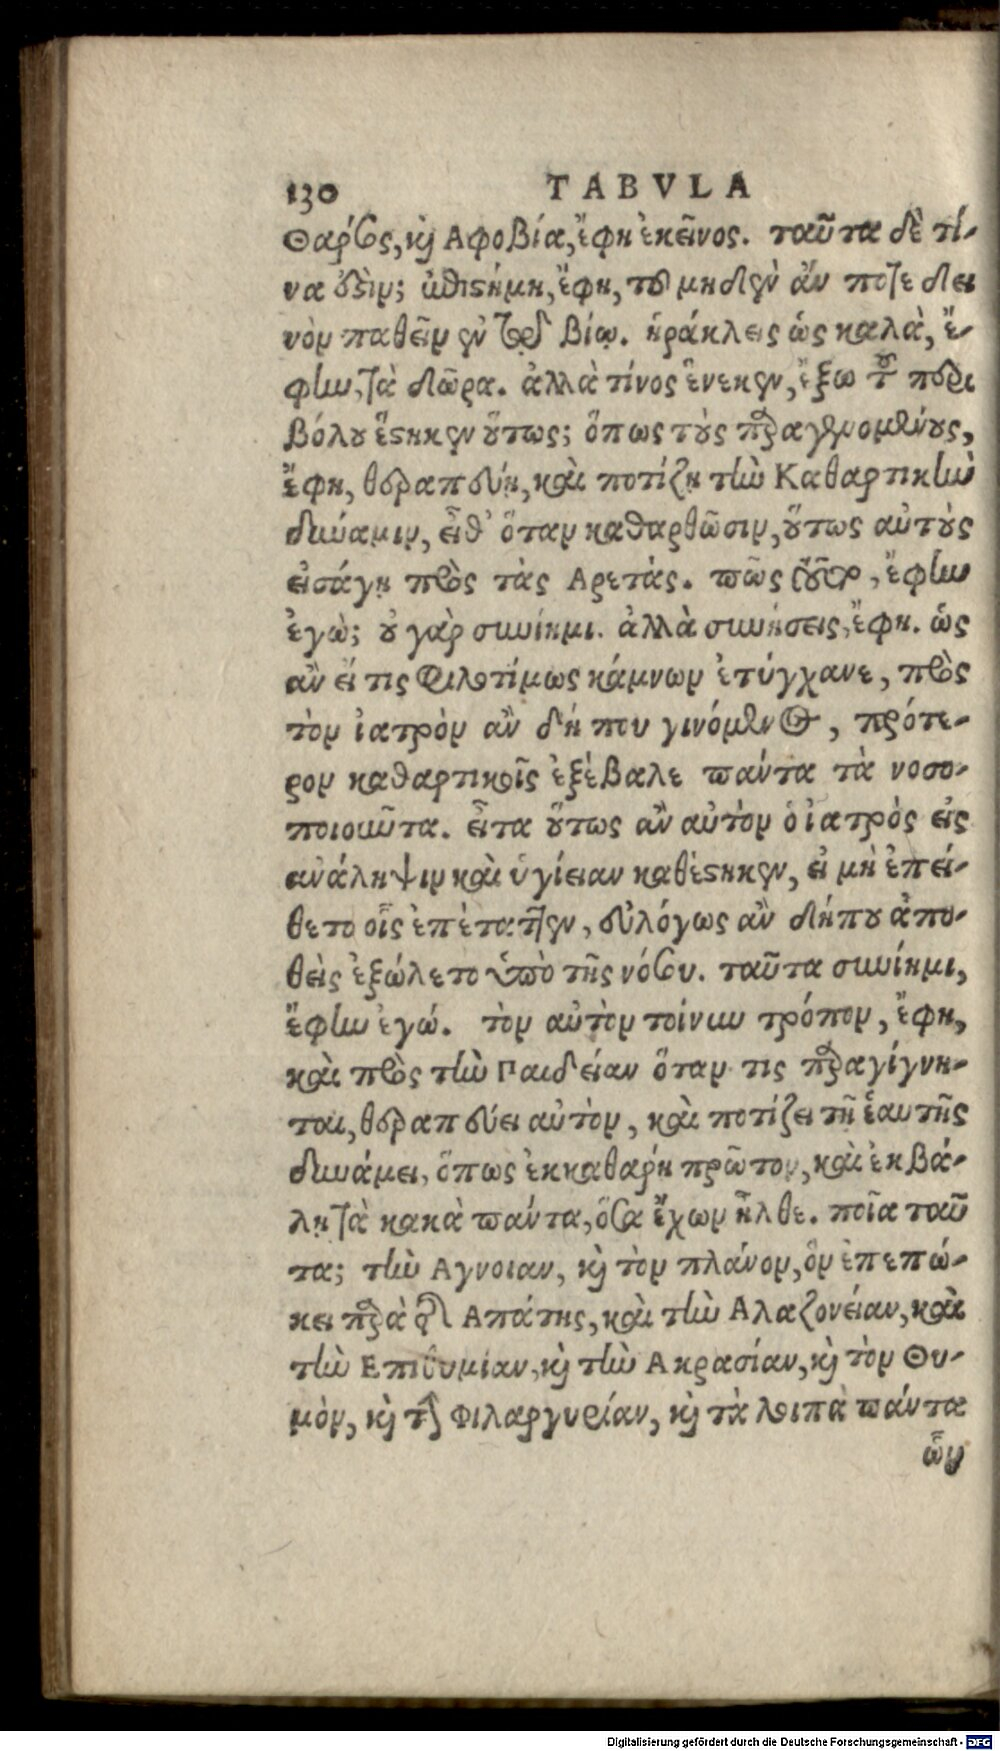 130 TABVLA
Θάρσος, καὶ Αφοβία, ἔφη ἐκεῖνος. ταῦτα δὲ τί-
να ἐςὶν; ἐπιςήμη, ἔφη, τοῦ μηδὲν ἄν ποτε δει
νὸν παθεῖν ἐν τῷ βίῳ. ἡράκλεις ὡς καλὰ, ἔ-
φην, τὰ δῶρα. ἀλλὰ τίνος ἕνεκεν, ἔξω τοῦ περι
βόλου ἕςηκεν οὕτως; ὅπως τοὺς παραγενομένους,
ἔφη, θεραπεύῃ, καὶ ποτίζῃ τὴν Καθαρτικὴν
δύναμιν, εἶθ' ὅταν καθαρθῶσιν, οὕτως αὐτοὺς
εἰσάγῃ πρὸς τὰς Αρετάς. πῶς τοῦτο, ἔφην
ἐγὼ; οὐ γὰρ συνίημι. ἀλλὰ συνήσεις, ἔφη. ὡς
ἂν εἴ τις φιλοτίμως κάμνων ἐτύγχανε, πρὸς
τὸν ἰατρὸν ἂν δή που γινόμενος, πρότε-
ρον καθαρτικοῖς ἐξέβαλε πάντα τὰ νοσο-
ποιοῦντα. εἶτα οὕτως ἂν αὐτὸν ὁ ἰατρὸς εἰς
ἀνάληψιν καὶ ὑγίειαν καθέςηκεν, εἰ μὴ ἐπεί-
θετο οἷς ἐπέταττεν, εὐλόγως ἂν δήπου ἀπω-
θεὶς ἐξώλετο ὑπὸ τῆς νόσου. ταῦτα συνίημι,
ἔφην ἐγώ. τὸν αὐτὸν τοίνυν τρόπον, ἔφη,
καὶ πρὸς τὴν Παιδείαν ὅταν τις παραγίγνη-
ται, θεραπεύει αὐτὸν, καὶ ποτίζει τῇ ἑαυτῆς
δυνάμει, ὅπως ἐκκαθάρῃ πρῶτον, καὶ ἐκβά-
λῃ τὰ κακὰ πάντα, ὅσα ἔχων ἦλθε. ποῖα ταῦ
τα; τὴν Αγνοιαν, καὶ τὸν πλάνον, ὃν ἐπεπώ-
κει παρὰ τῆς Απάτης, καὶ τὴν Αλαζονείαν, καὶ
τὴν Επιθυμίαν, καὶ τὴν Ακρασίαν, καὶ τὸν Θυ-
μὸν, καὶ τὴν Φιλαργυρίαν, καὶ τὰ λοιπὰ πάντα
ὧν
Digitalisierung gefördert durch die Deutsche Forschungsgemeinschaft - DFG